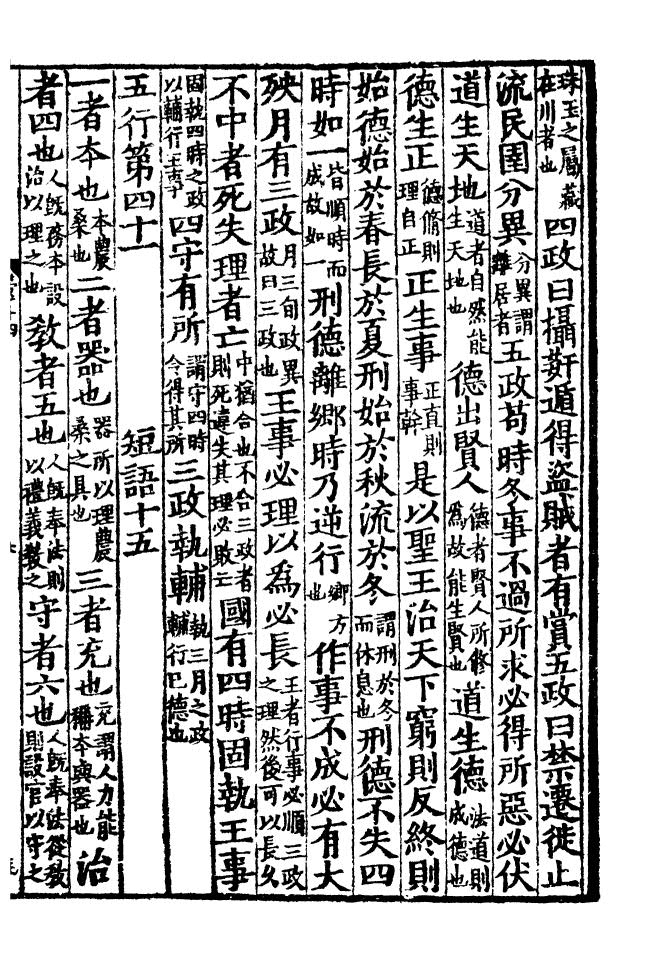 珠玉之屬藏在川者也四政曰攝姧遁得盜賊者有賞五政曰禁遷徙止
流民圉分異分異謂離居者五政苟時冬事不過所求必得所惡必伏
道生天地道者自然能生天地也德出賢人德者賢人所修爲故能生賢也道生德法道則成德也
德生正德脩則理自正正生事正直則事幹是以聖王治天下窮則反終則
始德始於春長於夏刑始於秋流於冬謂刑於冬而休息也刑德不失四
時如一皆順時而成故如一刑德離鄉時乃逆行鄉方也作事不成必有大
殃月有三政月三旬政異故曰三政也王事必理以爲必長王者行事必順三政之理然後可以長久
不中者死失理者亡中猶合也不合三政者則死違失其理必敗亡國有四時固執王事
固執四時之政以輔行王事四守有所謂守四時令得其所三政執輔執三月之政輔行已德也
五行第四十一 短語十五
一者夲也本農桑也二者器也器所以理農桑之具也三者充也充謂人力能稱本與器也治
者四也人旣務本設治以理之也敎者五也人旣奉法則以禮義教之守者六也人旣奉法從教則設官以守之